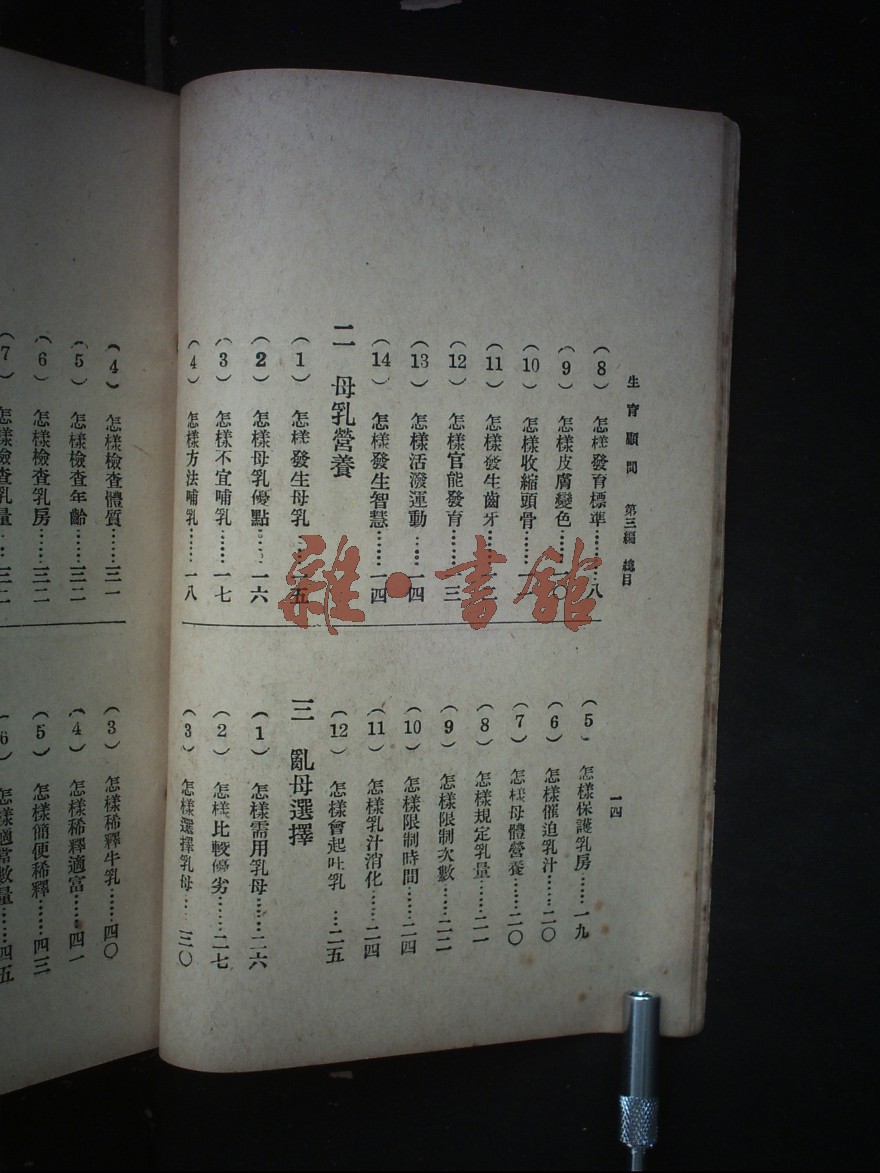 生育顧問 第三編 總目
一四
(8) 怎樣發育標準………八
(9) 怎樣皮膚變色……一〇
(10) 怎樣收縮頭骨……一
(11) 怎樣發生齒牙……一二
(12) 怎樣官能發育……一三
(13) 怎樣活潑運動……一四
(14) 怎樣發生智慧……一四
二 母乳營養
(1) 怎樣發生母乳……一五
(2) 怎樣母乳優點……一六
(3) 怎樣不宜哺乳……一七
(4) 怎樣方法哺乳……一八
(5) 怎樣保護乳房……一九
(6) 怎樣催迫乳汁……二〇
(7) 怎樣母體營養……二〇
(8) 怎樣規定乳量……二一
(9) 怎樣限制次數……二二
(10) 怎樣限制時間……二四
(11) 怎樣乳汁消化……二四
(12) 怎樣會起吐乳…二五
三 亂母選擇
(1) 怎樣需用乳母……二六
(2) 怎樣比較優劣……二七
(3) 怎樣選擇乳母……三〇
(4) 怎樣檢查體質……三一
(5) 怎樣檢查年齡……三二
(6) 怎樣檢查乳房……三二
(7) 怎樣檢查乳量……三二
(3) 怎樣稀釋牛乳……四〇
(4) 怎樣稀釋適富……四一
(5) 怎樣簡便稀釋……四三
(6) 怎樣適常數量……四五
雜·書館